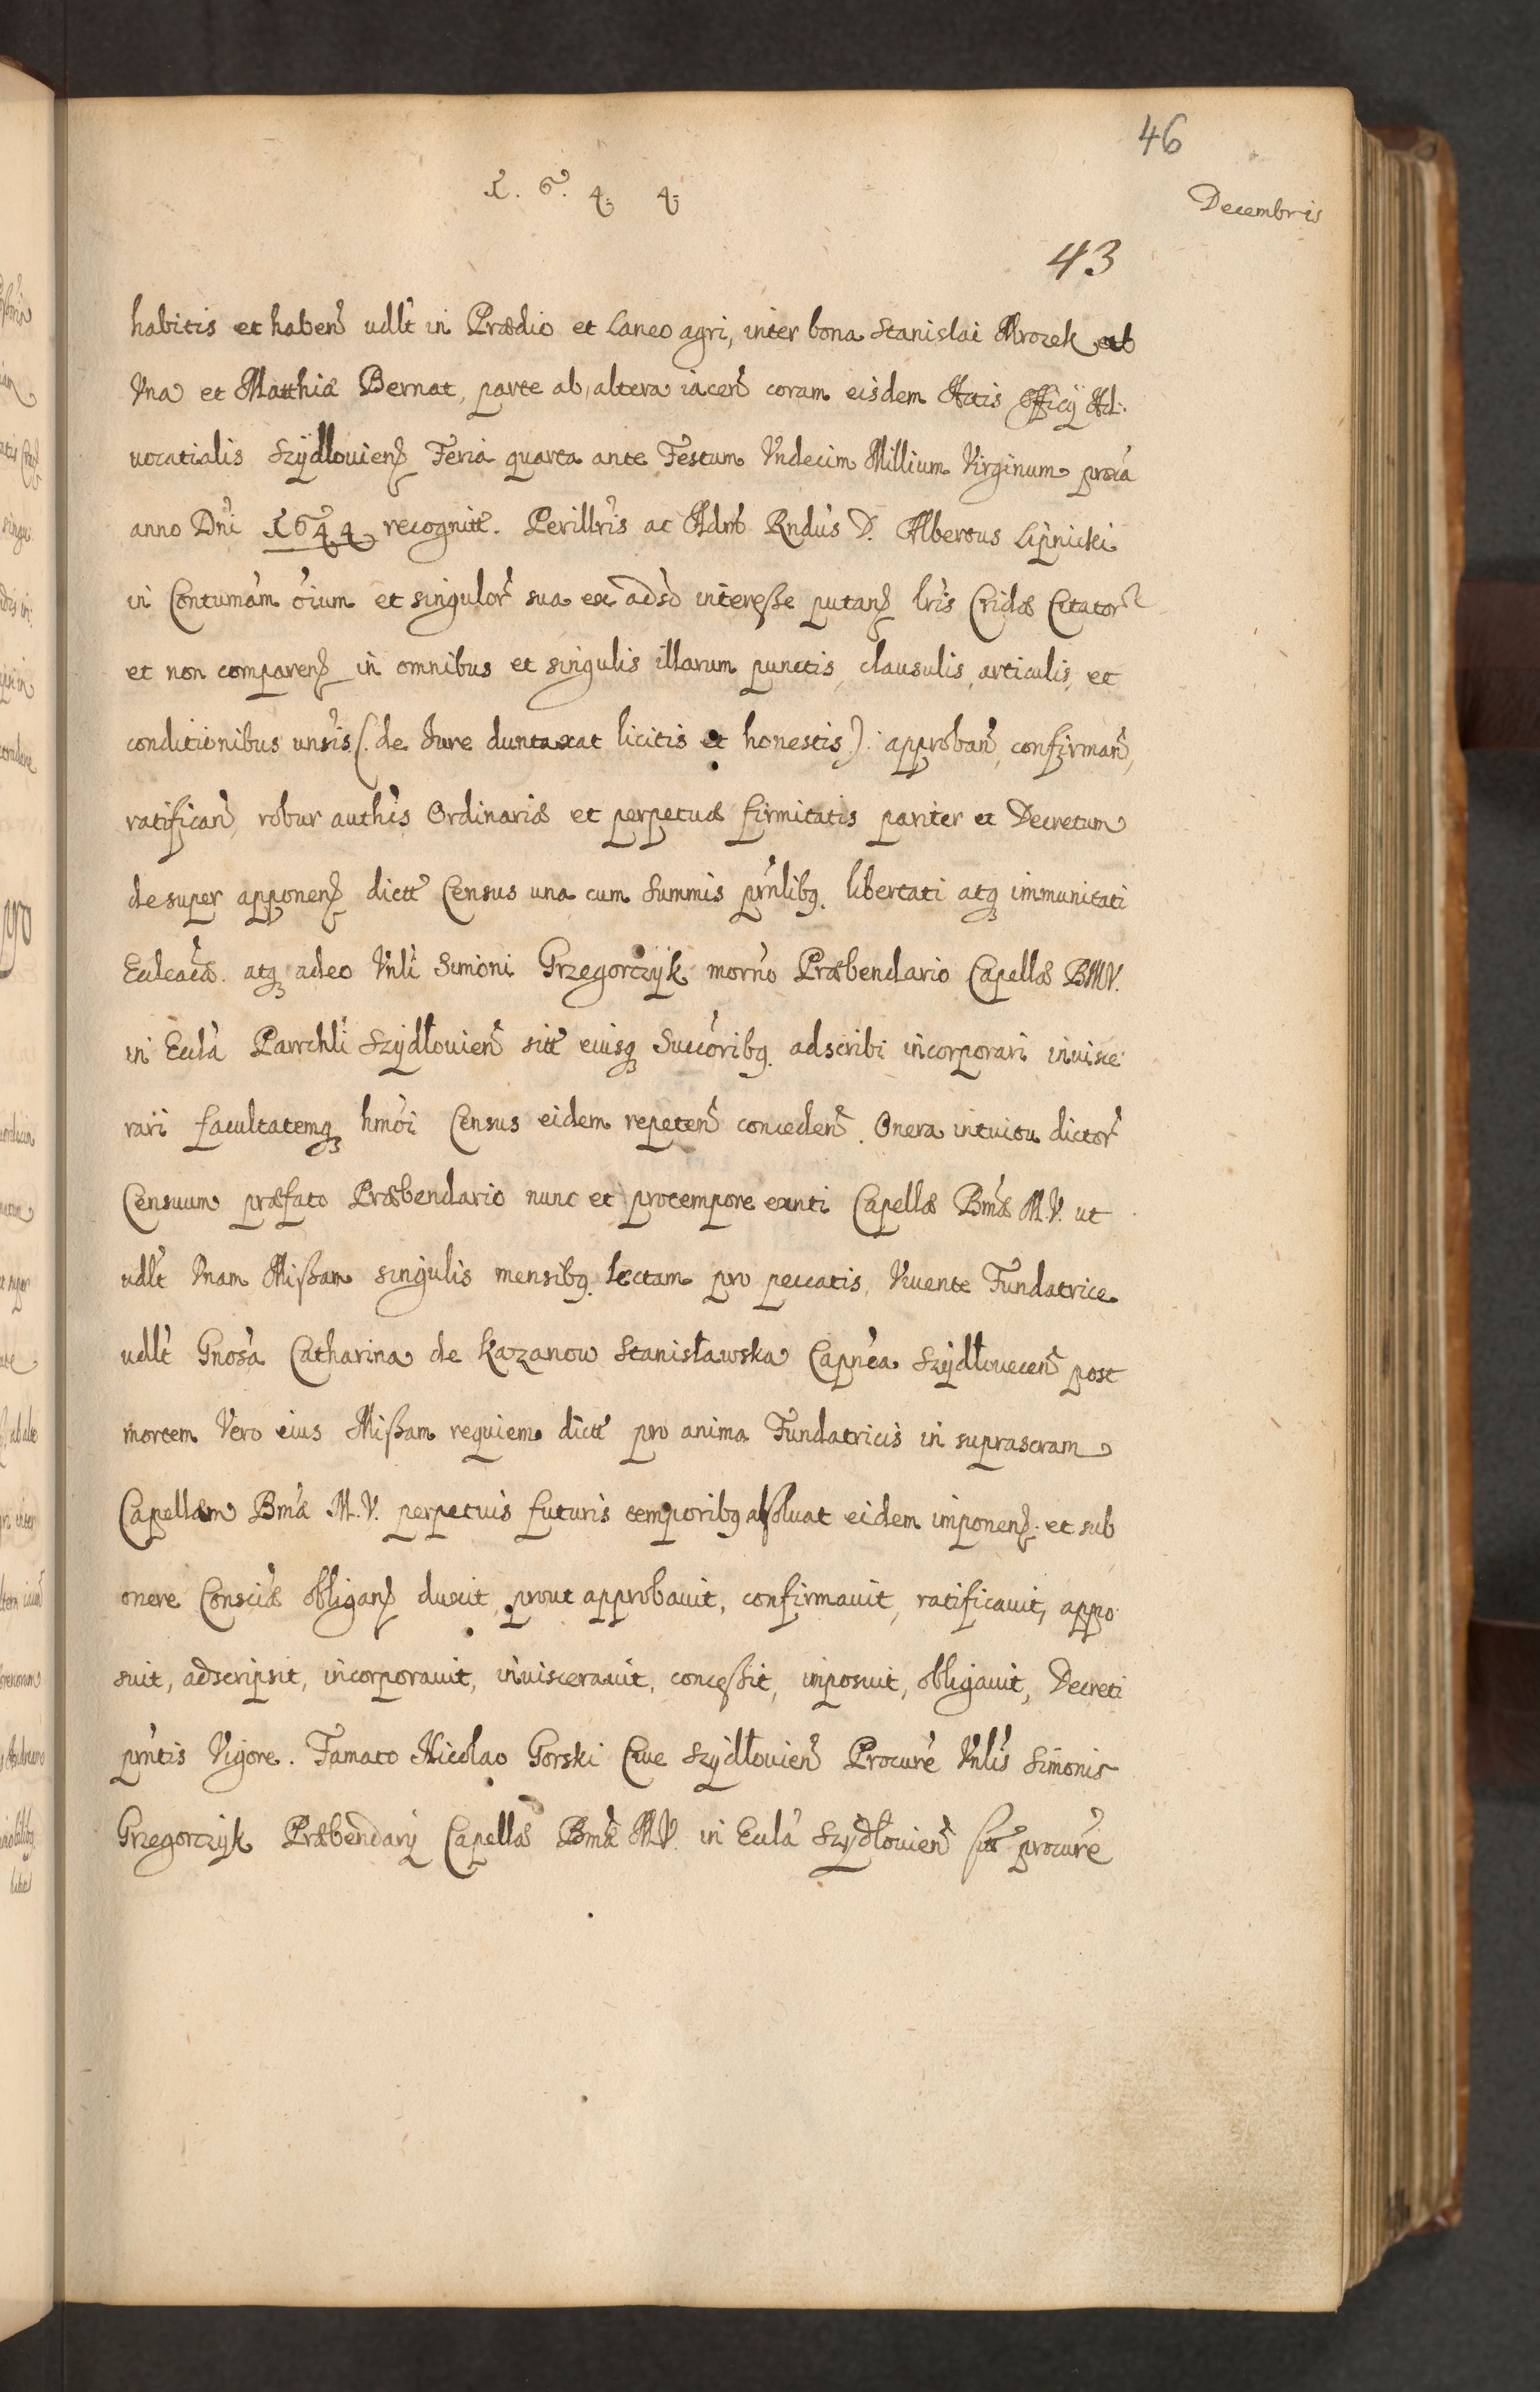 46
1. 6. 4. 4.
Decembris
43
habitis et haben̄ vdłt in Prædio et Laneo agri, inter bona Stanislai Mrozek ab
Vna et Matthiæ Bernat, parte ab altera iacen̄ coram eisdem Actis Officÿ Ad:
uocatialis Szÿdłouien̄ Feria quarta ante Festum Vndecim Millium Virginum proxā
anno Dn̄i 1644 recognitt. Perillr̄is ac Adm̄ Rndūs D. Albertus Lipnicki
in Contumām ōium et singulor̄ sua ex adsō interesse putan̄ lr̄is Cridæ Citator̄
et non comparen̄ in omnibus et singulis illarum punctis, clausulis, articulis, et
conditionibus unsīs (: de Jure duntaxat licitis et honestis): approban̄, confirman̄,
ratifican̄, robur authīs Ordinariæ et perpetuæ firmitatis pariter et Decretum
desuper apponen̄ dictt Census una cum Summis pr̄nlibq libertati atq immunitati
Eccleācæ. atq adeo Vnlī Simoni Grzegorczÿk mornō Præbendario Capellæ BMV.
in Ecclā Parrchlī Szÿdłouien̄ sitt eiusq Succōribq. adscribi incorporari inuisce
rari facultatemq hmōi Census eidem repeten̄ conceden̄. Onera intuitu dictor̄
Censuum præfato Præbendario nunc et protempore exnti Capellæ Bmæ M.V. ut
vdłt Vnam Missam singulis mensibq. lectam pro peccatis, Viuente Fundatrice
vdłt Gnōsā Catharina de Kazanow Stanisławska Capn̄ea Szÿdłouecen̄ post
mortem Vero eius Missam requiem dictt pro anima Fundatricis in suprascram
Capellam Bmæ M.V. perpetuis futuris temporibq absoluat eidem imponen̄: et sub
onere Consciæ obligan̄ duxit, prout approbauit, confirmauit, ratificauit, appo
suit, adscripsit, incorporauit, inuiscerauit, concessit, imposuit, obligauit, Decreti
pr̄ntis Vigore. Famato Nicolao Gorski Ciue Szÿdłouien̄ Procurē Vnlīs Simonis
Grzegorczÿk Præbendarÿ Capellæ Bmæ M.V. in Ecclā Szÿdłouien̄ sitt procurē